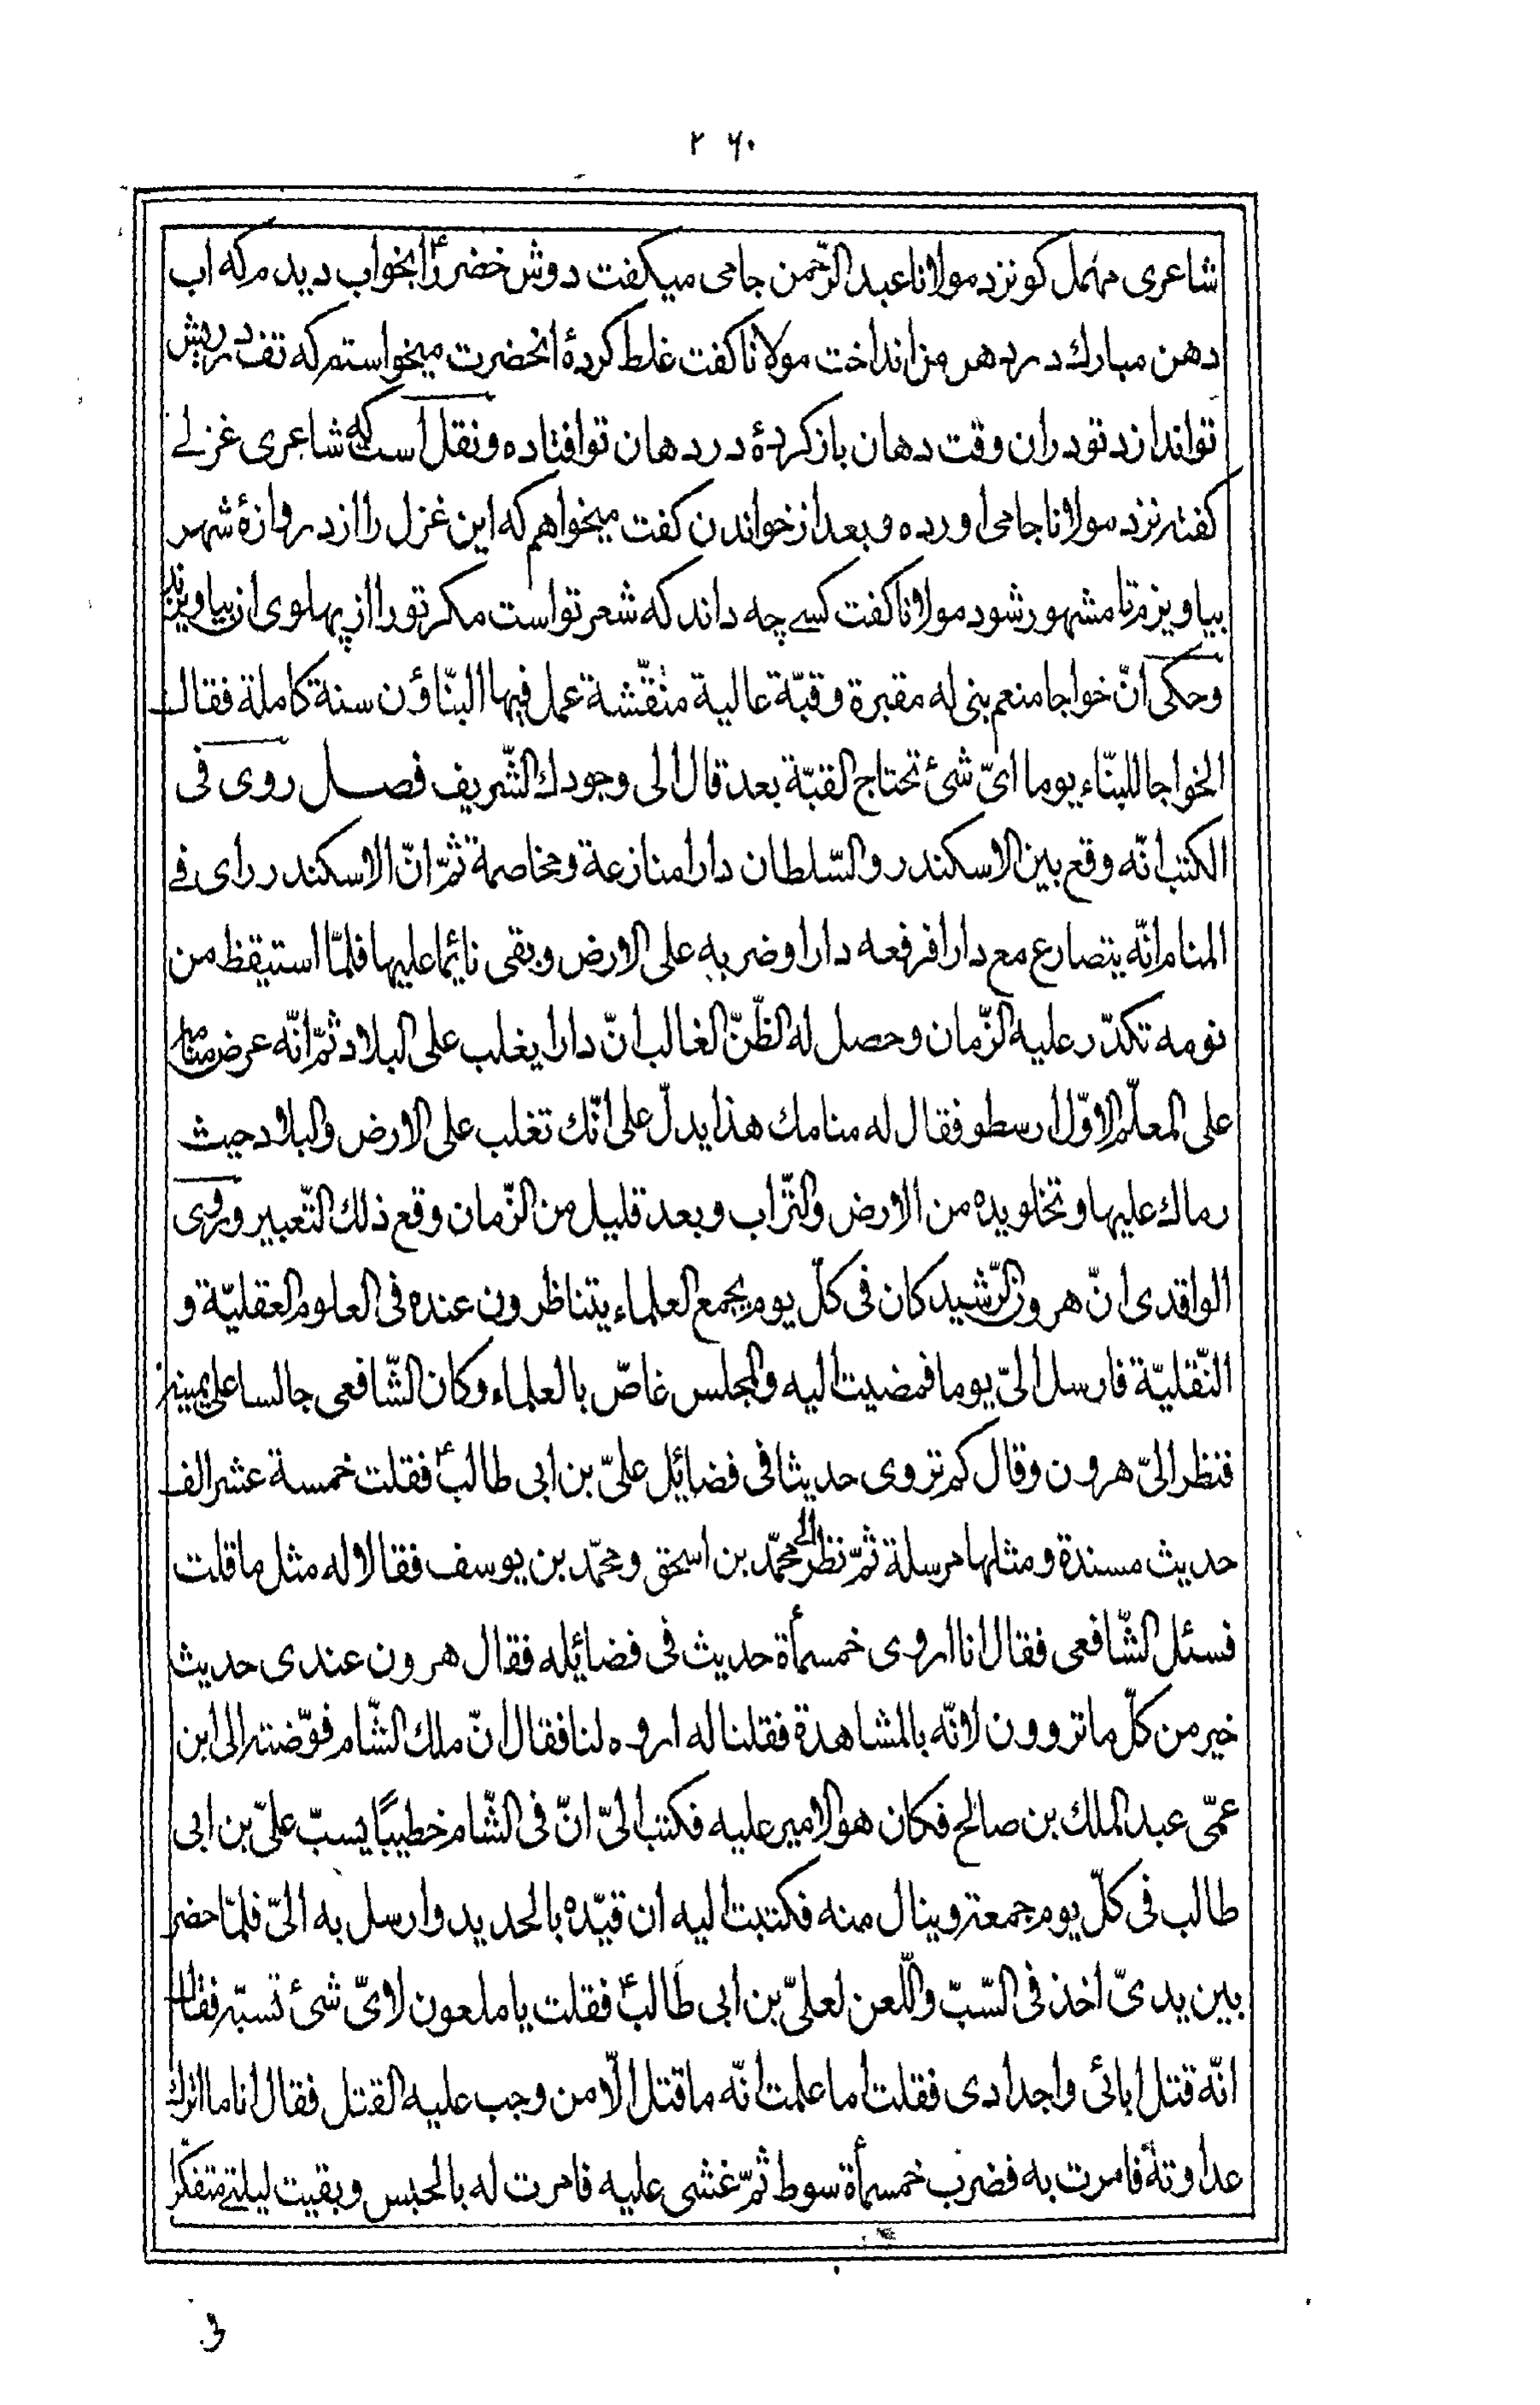 ۲۶۰
شاعری مهمل کو نزد مولانا عبد الرّحمن جامی میکفت دوش خضر را ع بخواب دیدم که اب
دهن مبارك در دهن من انداخت مولانا کفت غلط کردهٔ انحضرت میخواستم که تف در ریش
تو اندازد تو دران وقت دهان باز کردهٔ در دهان تو افتاده و نقل است که شاعری غزلے
کفته نزد مولانا جامی اورده و بعد از خواندن کفت میخواهم که این غزل را از دروازهٔ شهر
بیاویزم تا مشهور شود مولانا کفت کسے چه داند که شعر تو است مکر تو را از پهلوی ان بیاویزند
وحكى انّ خواجا منعم بنى له مقبرة وقبّة عالية منقّشة عمل فيها البنّاؤن سنة كاملة فقال
الخواجا للبنّاء يوما اىّ شئ تحتاج القبّة بعد قال الى وجودك الشّريف فصل روى فى
الكتب انّه وقع بين الاسكندر والسّلطان دارا منازعة ومخاصمة ثمّ انّ الاسكندر راى فے
المنام انّه يتصارع مع دارا فرفعه دارا وضربه على الارض وبقى نائما عليها فلمّا استيقظ من
نومه تكدّر عليه الزّمان وحصل له الظّنّ الغالب انّ دارا يغلب على البلاد ثمّ انّه عرض منامه
على المعلّم الاوّل ارسطو فقال له منامك هذا يدلّ على انّك تغلب على الارض والبلاد حيث
رماك عليها وتخلو يده من الارض والتّراب وبعد قليل من الزّمان وقع ذلك التّعبير وروى
الواقدى انّ هرون الرّشيد كان فى كلّ يوم يجمع العلماء يتناظرون عنده فى العلوم العقليّة و
النّقليّة فارسل الىّ يوما فمضيت اليه والمجلس غاصّ بالعلماء وكان الشّافعى جالسا على يمينه
فنظر الىّ هرون وقال كم تروى حديثا فى فضائل علىّ بن ابى طالب ع فقلت خمسة عشر الف
حديث مسندة ومثلها مرسلة ثمّ نظر الى محمّد بن اسحق ومحمّد بن يوسف فقالا له مثل ما قلت
فسئل الشّافعى فقال انا اروى خمسمأة حديث فى فضائله فقال هرون عندى حديث
خير من كلّ ما تروون لانّه بالمشاهدة فقلنا له اروه لنا فقال انّ ملك الشّام فوّضته الى ابن
عمّى عبد الملك بن صالح فكان هو الامير عليه فكتب الىّ انّ فى الشّام خطيبًا يسبّ علىّ بن ابى
طالب فى كلّ يوم جمعة وينال منه فكتبت اليه ان قيّده بالحديد وارسل به الىّ فلمّا حضر
بين يدىّ اخذ فى السّبّ واللّعن لعلىّ بن ابى طالب ع فقلت يا ملعون لاىّ شئ تسبّه فقال
انّه قتل ابائى واجدادى فقلت اما علمت انّه ما قتل الّا من وجب عليه القتل فقال انا ما اترك
عداوته فامرت به فضرب خمسمأة سوط ثمّ غشى عليه فامرت له بالحبس وبقيت ليلتے متفكّرا
فى